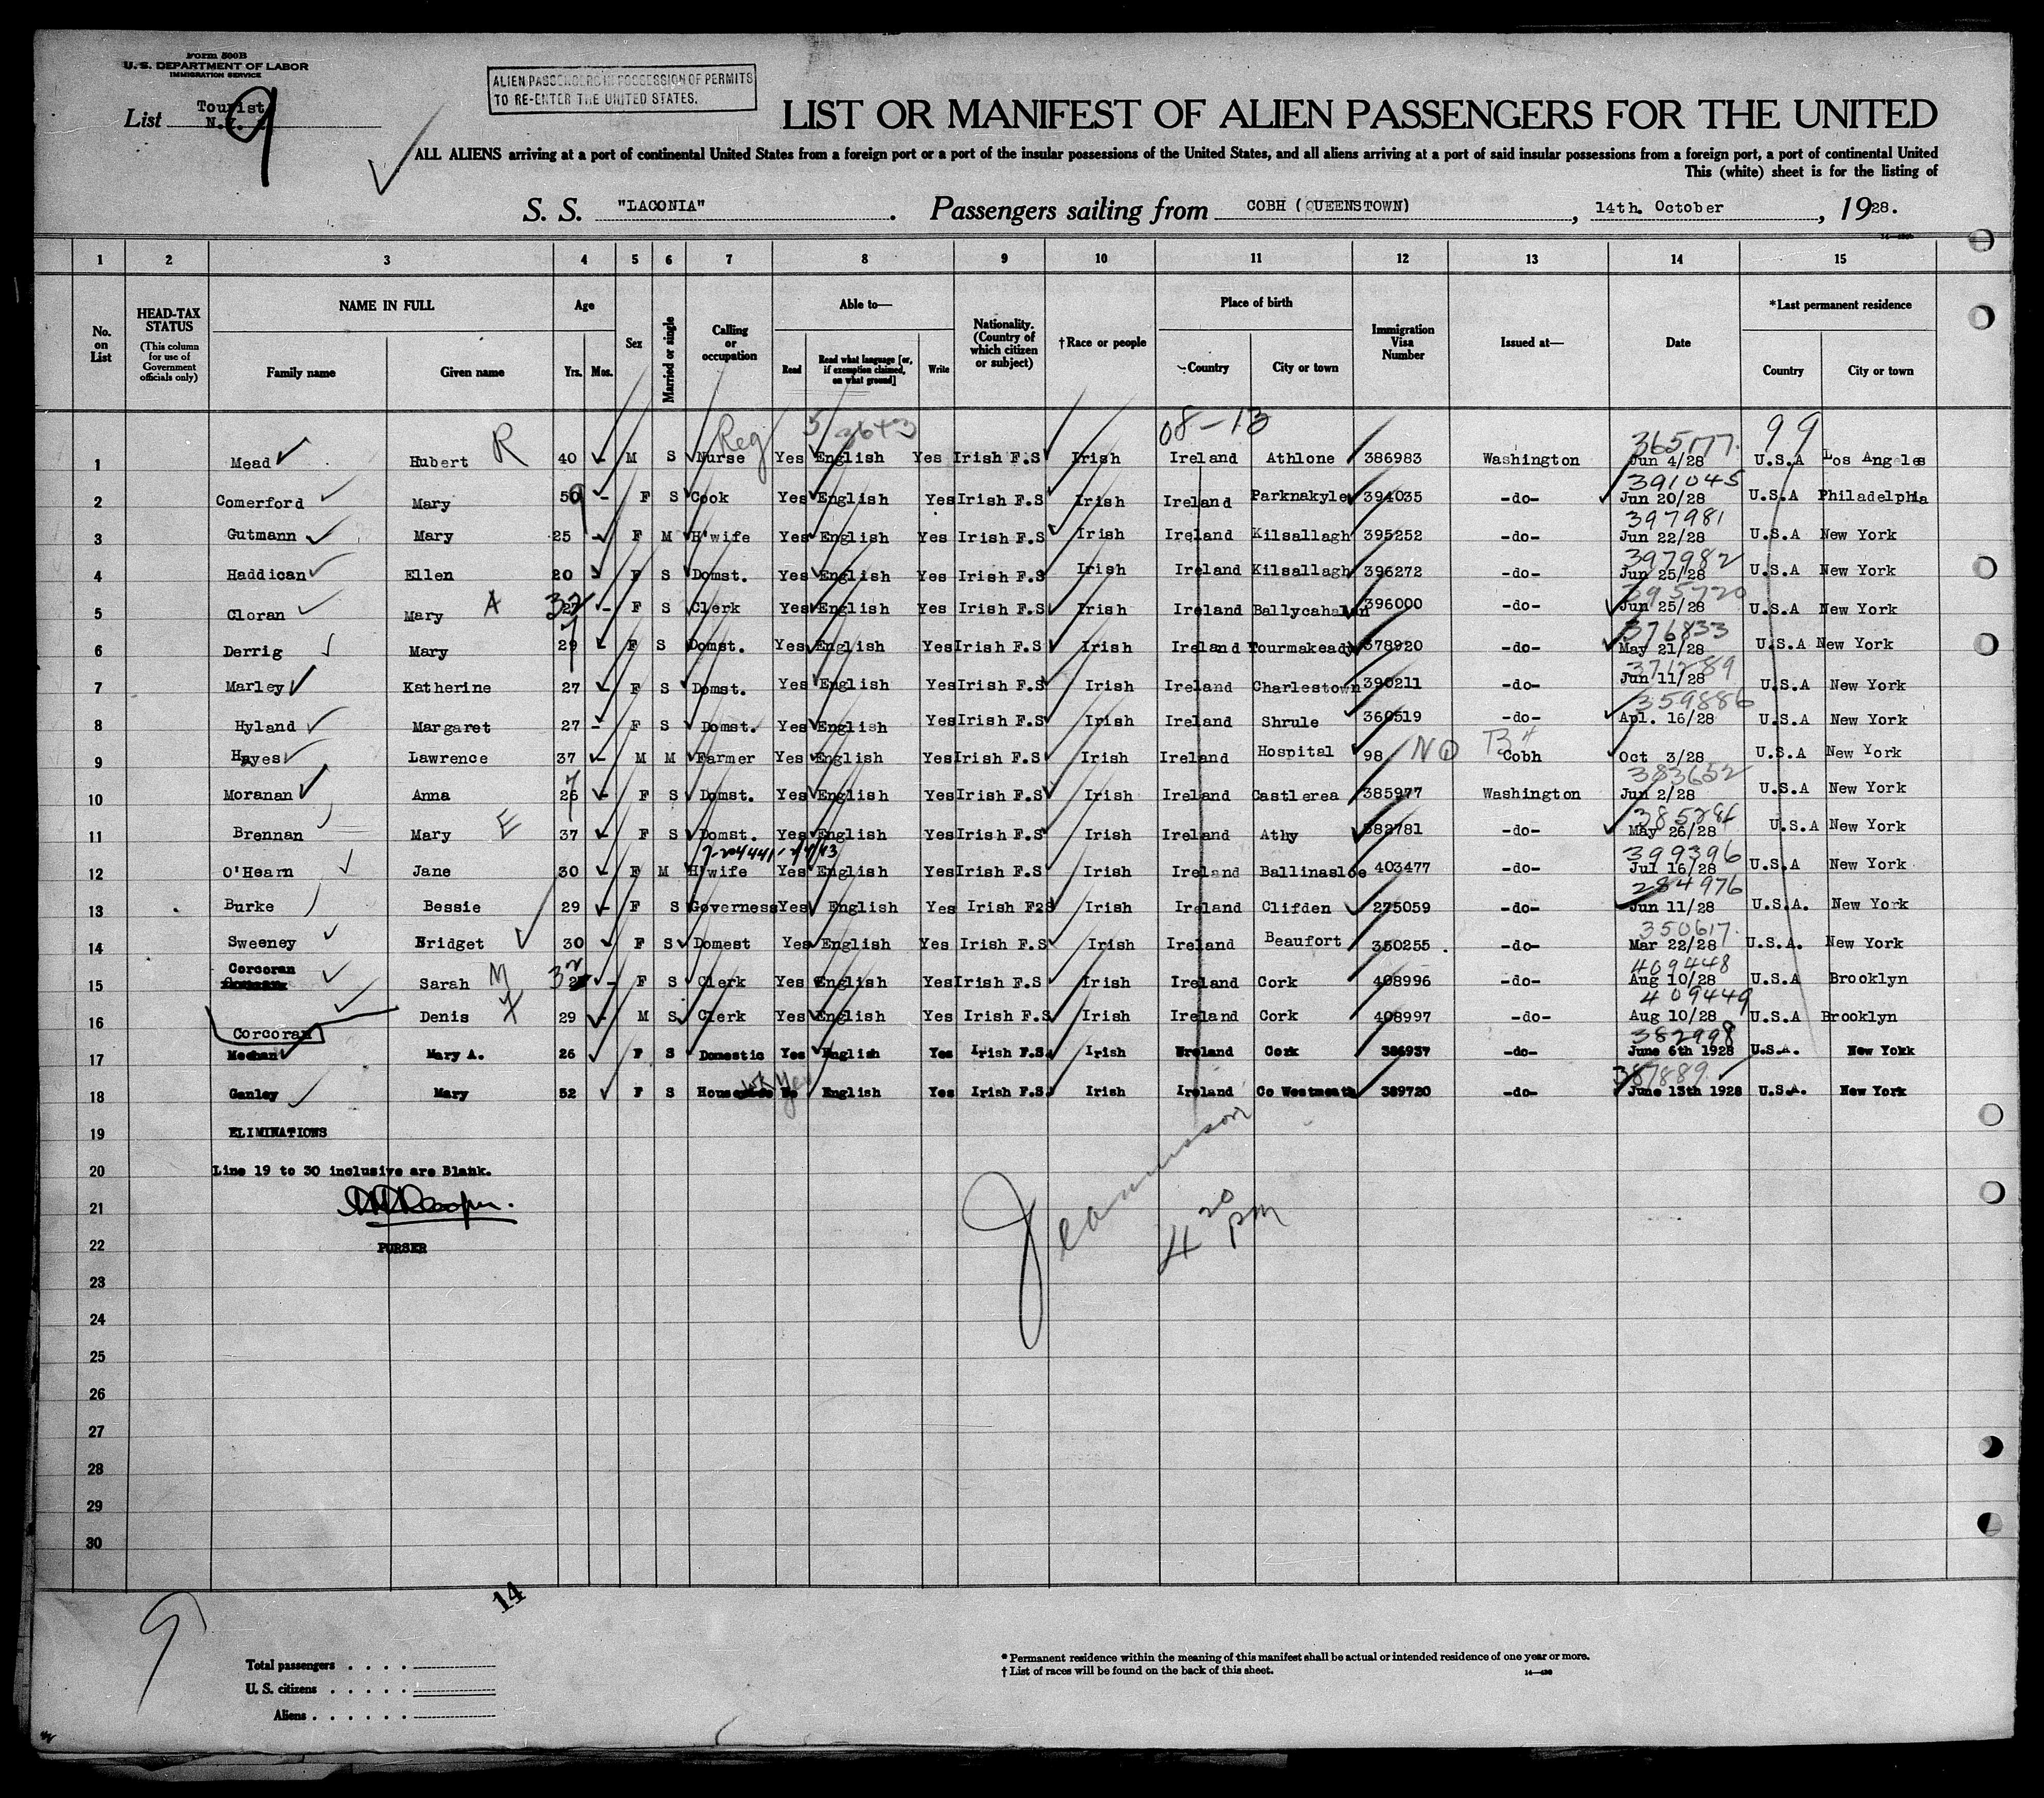 Form 500B
U. S. DEPARTMENT OF LABOR
IMMIGRATION SERVICE
List Tourist 9
ALIEN PASSENGERS IN POSSESSION OF PERMITS
TO RE-ENTER THE UNITED STATES.
LIST OR MANIFEST OF ALIEN PASSENGERS FOR THE UNITED
ALL ALIENS arriving at a port of continental United States from a foreign port or a port of the insular possessions of the United States, and all aliens arriving at a port of said insular possessions from a foreign port, a port of continental United
This (white) sheet is for the listing of
S. S. "LACONIA". Passengers sailing from COBH (QUEENSTOWN), 14th. October, 1928.
1 2 3 4 5 6 7 8 9 10 11 12 13 14 15
No. on List
HEAD-TAX STATUS (This column for use of Government officials only)
NAME IN FULL Family name Given name
Age Yrs. Mos.
Sex
Married or single
Calling or occupation
Able to— Read Read what language [or, if exemption claimed, on what ground] Write
Nationality. (Country of which citizen or subject)
†Race or people
Place of birth Country City or town
Immigration Visa Number
Issued at—
Date
*Last permanent residence Country City or town
Reg 5 08-13 365177. 99
1 Mead Hubert R 40 - M S Nurse Yes English Yes Irish F.S Irish Ireland Athlone 386983 Washington Jun 4/28 U.S.A Los Angeles
391045
2 Comerford Mary 50 - F S Cook Yes English Yes Irish F.S Irish Ireland Parknakyle 394035 -do- Jun 20/28 U.S.A Philadelphia
397981
3 Gutmann Mary 25 - F M H'wife Yes English Yes Irish F.S Irish Ireland Kilsallagh 395252 -do- Jun 22/28 U.S.A New York
397982
4 Haddican Ellen 20 - F S Domst. Yes English Yes Irish F.S Irish Ireland Kilsallagh 396272 -do- Jun 25/28 U.S.A New York
395720
5 Cloran Mary A 32 27 - F S Clerk Yes English Yes Irish F.S Irish Ireland Ballycahalan 396000 -do- Jun 25/28 U.S.A New York
376833
6 Derrig Mary 29 - F S Domst. Yes English Yes Irish F.S Irish Ireland Tourmakeady 378920 -do- May 21/28 U.S.A New York
371289
7 Marley Katherine 27 - F S Domst. Yes English Yes Irish F.S Irish Ireland Charlestown 390211 -do- Jun 11/28 U.S.A New York
359886
8 Hyland Margaret 27 - F S Domst. Yes English Yes Irish F.S Irish Ireland Shrule 360519 -do- Apl. 16/28 U.S.A New York
9 Hayes Lawrence 37 - M M Farmer Yes English Yes Irish F.S Irish Ireland Hospital 98 NQ Cobh Oct 3/28 U.S.A New York
383652
10 Moranan Anna 26 - F S Domst. Yes English Yes Irish F.S Irish Ireland Castlerea 385977 Washington Jun 2/28 U.S.A New York
11 Brennan Mary E 37 - F S Domst. Yes English Yes Irish F.S Irish Ireland Athy 382781 -do- May 26/28 U.S.A New York
399396
12 O'Hearn Jane 30 - F M H'wife Yes English Yes Irish F.S Irish Ireland Ballinasloe 403477 -do- Jul 16/28 U.S.A New York
284976
13 Burke Bessie 29 - F S Governess Yes English Yes Irish F2S Irish Ireland Clifden 275059 -do- Jun 11/28 U.S.A. New York
350617.
14 Sweeney Bridget 30 - F S Domest Yes English Yes Irish F.S Irish Ireland Beaufort 350255 -do- Mar 22/28 U.S.A. New York
409448
15 Corcoran Sarah M 32 - F S Clerk Yes English Yes Irish F.S Irish Ireland Cork 408996 -do- Aug 10/28 U.S.A Brooklyn
409449
16 Corcoran Denis 29 - M S Clerk Yes English Yes Irish F.S Irish Ireland Cork 408997 -do- Aug 10/28 U.S.A Brooklyn
382998
17 Meehan Mary A. 26 F S Domestic Yes English Yes Irish F.S. Irish Ireland Cork 386937 -do- June 6th 1928 U.S.A. New York
387889.
18 Ganley Mary 52 F S House Yes English Yes Irish F.S. Irish Ireland Co Westmeath 389720 -do- June 13th 1928 U.S.A. New York
19 ELIMINATIONS
20 Line 19 to 30 inclusive are Blank.
21
22 PURSER
4 20 pm
23
24
25
26
27
28
29
30
14
9
Total passengers
U. S. citizens
Aliens
* Permanent residence within the meaning of this manifest shall be actual or intended residence of one year or more.
† List of races will be found on the back of this sheet.